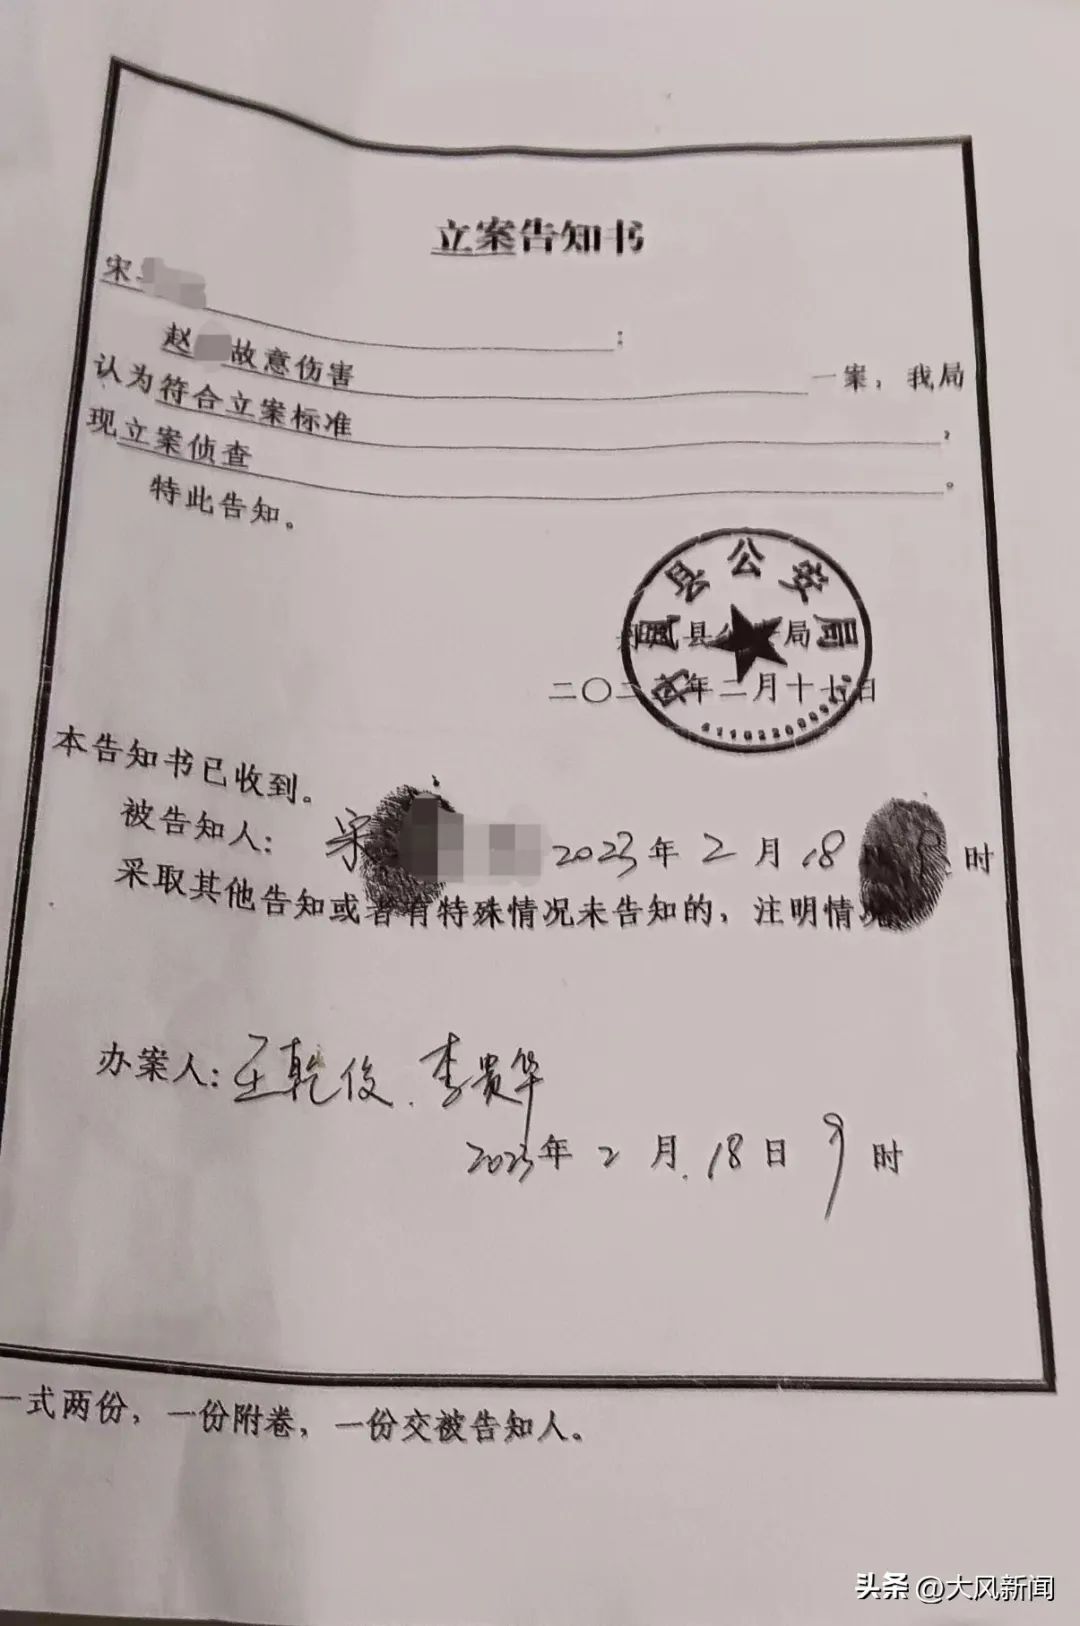 立案告知书
宋
：
赵 故意伤害 一案，我局
认为符合立案标准，
现立案侦查。
特此告知。
凤县公安局
县 局
二〇二 年二月十七日
本告知书已收到。
被告知人：宋 2023年2月18 9时
采取其他告知或者有特殊情况未告知的，注明情况
办案人：王乾俊.李贵华
2023年2月.18日9时
一式两份，一份附卷，一份交被告知人。
头条 @大风新闻